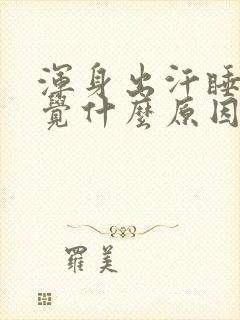 渾身出汗睡
覺什麼原因
羅美